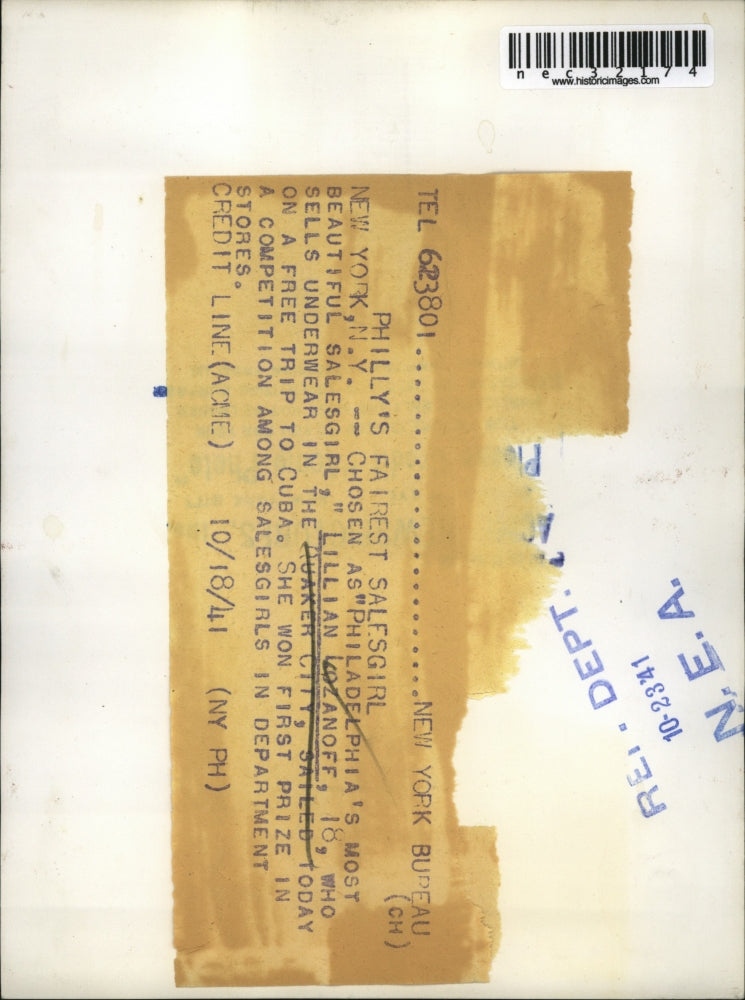 nec32174
www.historicimages.com
TEL 623801..............................NEW YORK BUREAU
(CH)
PHILLY'S FAIREST SALESGIRL
NEW YORK, N.Y. -- CHOSEN AS "PHILADELPHIA'S MOST
BEAUTIFUL SALESGIRL," LILLIAN LOZANOFF, 18, WHO
SELLS UNDERWEAR IN THE QUAKER CITY, SAILED TODAY
ON A FREE TRIP TO CUBA. SHE WON FIRST PRIZE IN
A COMPETITION AMONG SALESGIRLS IN DEPARTMENT
STORES.
CREDIT LINE (ACME) 10/18/41 (NY PH)
REF. DEPT.
10-23-41
N.E.A.